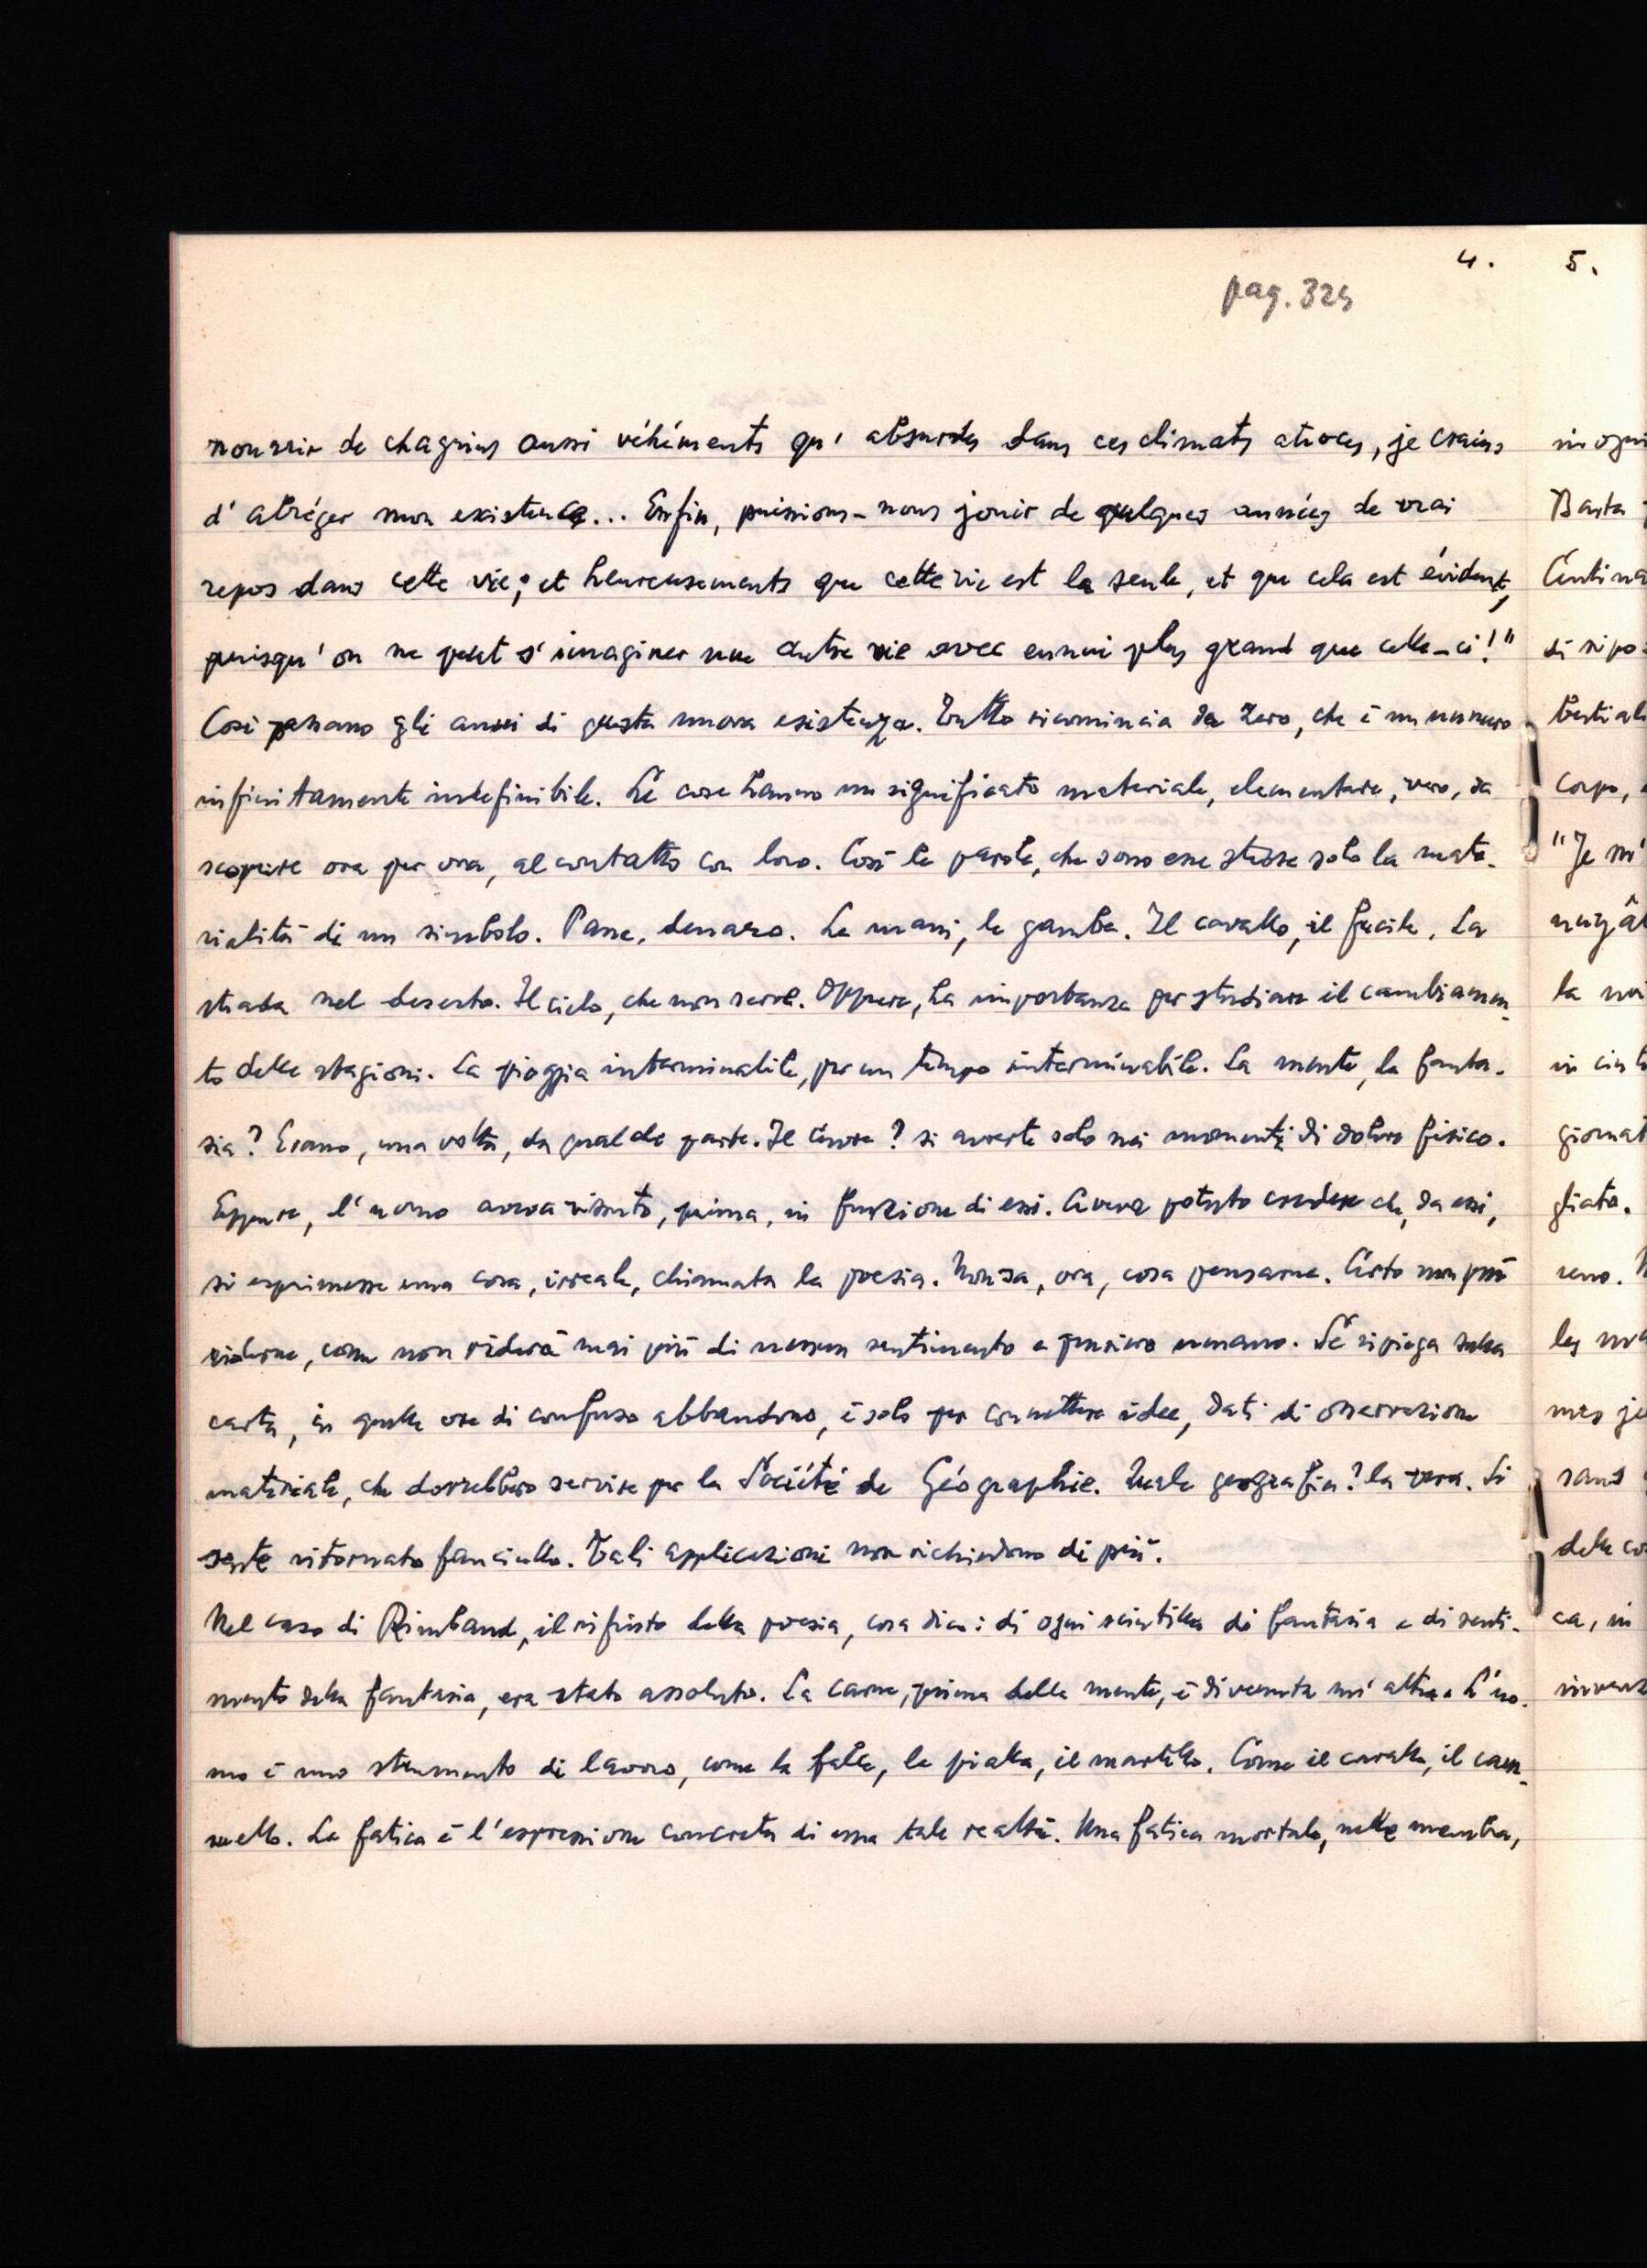 4.
pag. 325
nourrir de chagrins aussi véhéments qu'absurdes dans ces climats atroces, je crains
d'abréger mon existence... Enfin, puissions-nous jouir de quelques années de vrai
repos dans cette vie; et heureusements que cette vie est la seule, et que cela est évident,
puisqu'on ne peut s'imaginer une autre vie avec ennui plus grand que celle-ci!"
Così passano gli anni di questa nuova esistenza. Tutto ricomincia da zero, che è un numero
infinitamente indefinibile. Le cose hanno un significato materiale, elementare, vero, da
scoprire ora per ora, al contatto con loro. Così le parole, che sono esse stesse solo la mate-
rialità di un simbolo. Pane, denaro. Le mani, le gambe. Il cavallo, il fucile. La
strada nel deserto. Il cielo, che non serve. Oppure, ha importanza per studiare il cambiamen-
to delle stagioni. La pioggia interminabile, per un tempo interminabile. La mente, la fanta-
sia? Erano, una volta, da qualche parte. Il cuore? si avverte solo nei momenti di dolore fisico.
Eppure, l'uomo aveva vissuto, prima, in funzione di essi. Aveva potuto credere che, da essi,
si esprimesse una cosa, irreale, chiamata la poesia. Non sa, ora, cosa pensarne. Certo non può
riderne, come non riderà mai più di nessun sentimento e pensiero umano. Se si piega sulla
carta, in quelle ore di confuso abbandono, è solo per connettere idee, dati di osservazione
materiale, che dovrebbero servire per la Société de Géographie. Quale geografia? la vera. Si
sente ritornato fanciullo. Tali applicazioni non richiedono di più.
Nel caso di Rimbaud, il rifiuto della poesia, cosa dico: di ogni scintilla di fantasia e di senti-
mento della fantasia, era stato assoluto. La carne, prima della mente, è divenuta un'altra. L'uo-
mo è uno strumento di lavoro, come la falce, la pialla, il martello. Come il cavallo, il cam-
mello. La fatica è l'espressione concreta di una tale realtà. Una fatica mortale, nelle membra,
5.
in ogni
Basta
Centina
di ripo
bestiali
corpo,
"Je m'
la noi
giornat
gliata.
les
mes je
sans
delle co
ca, in